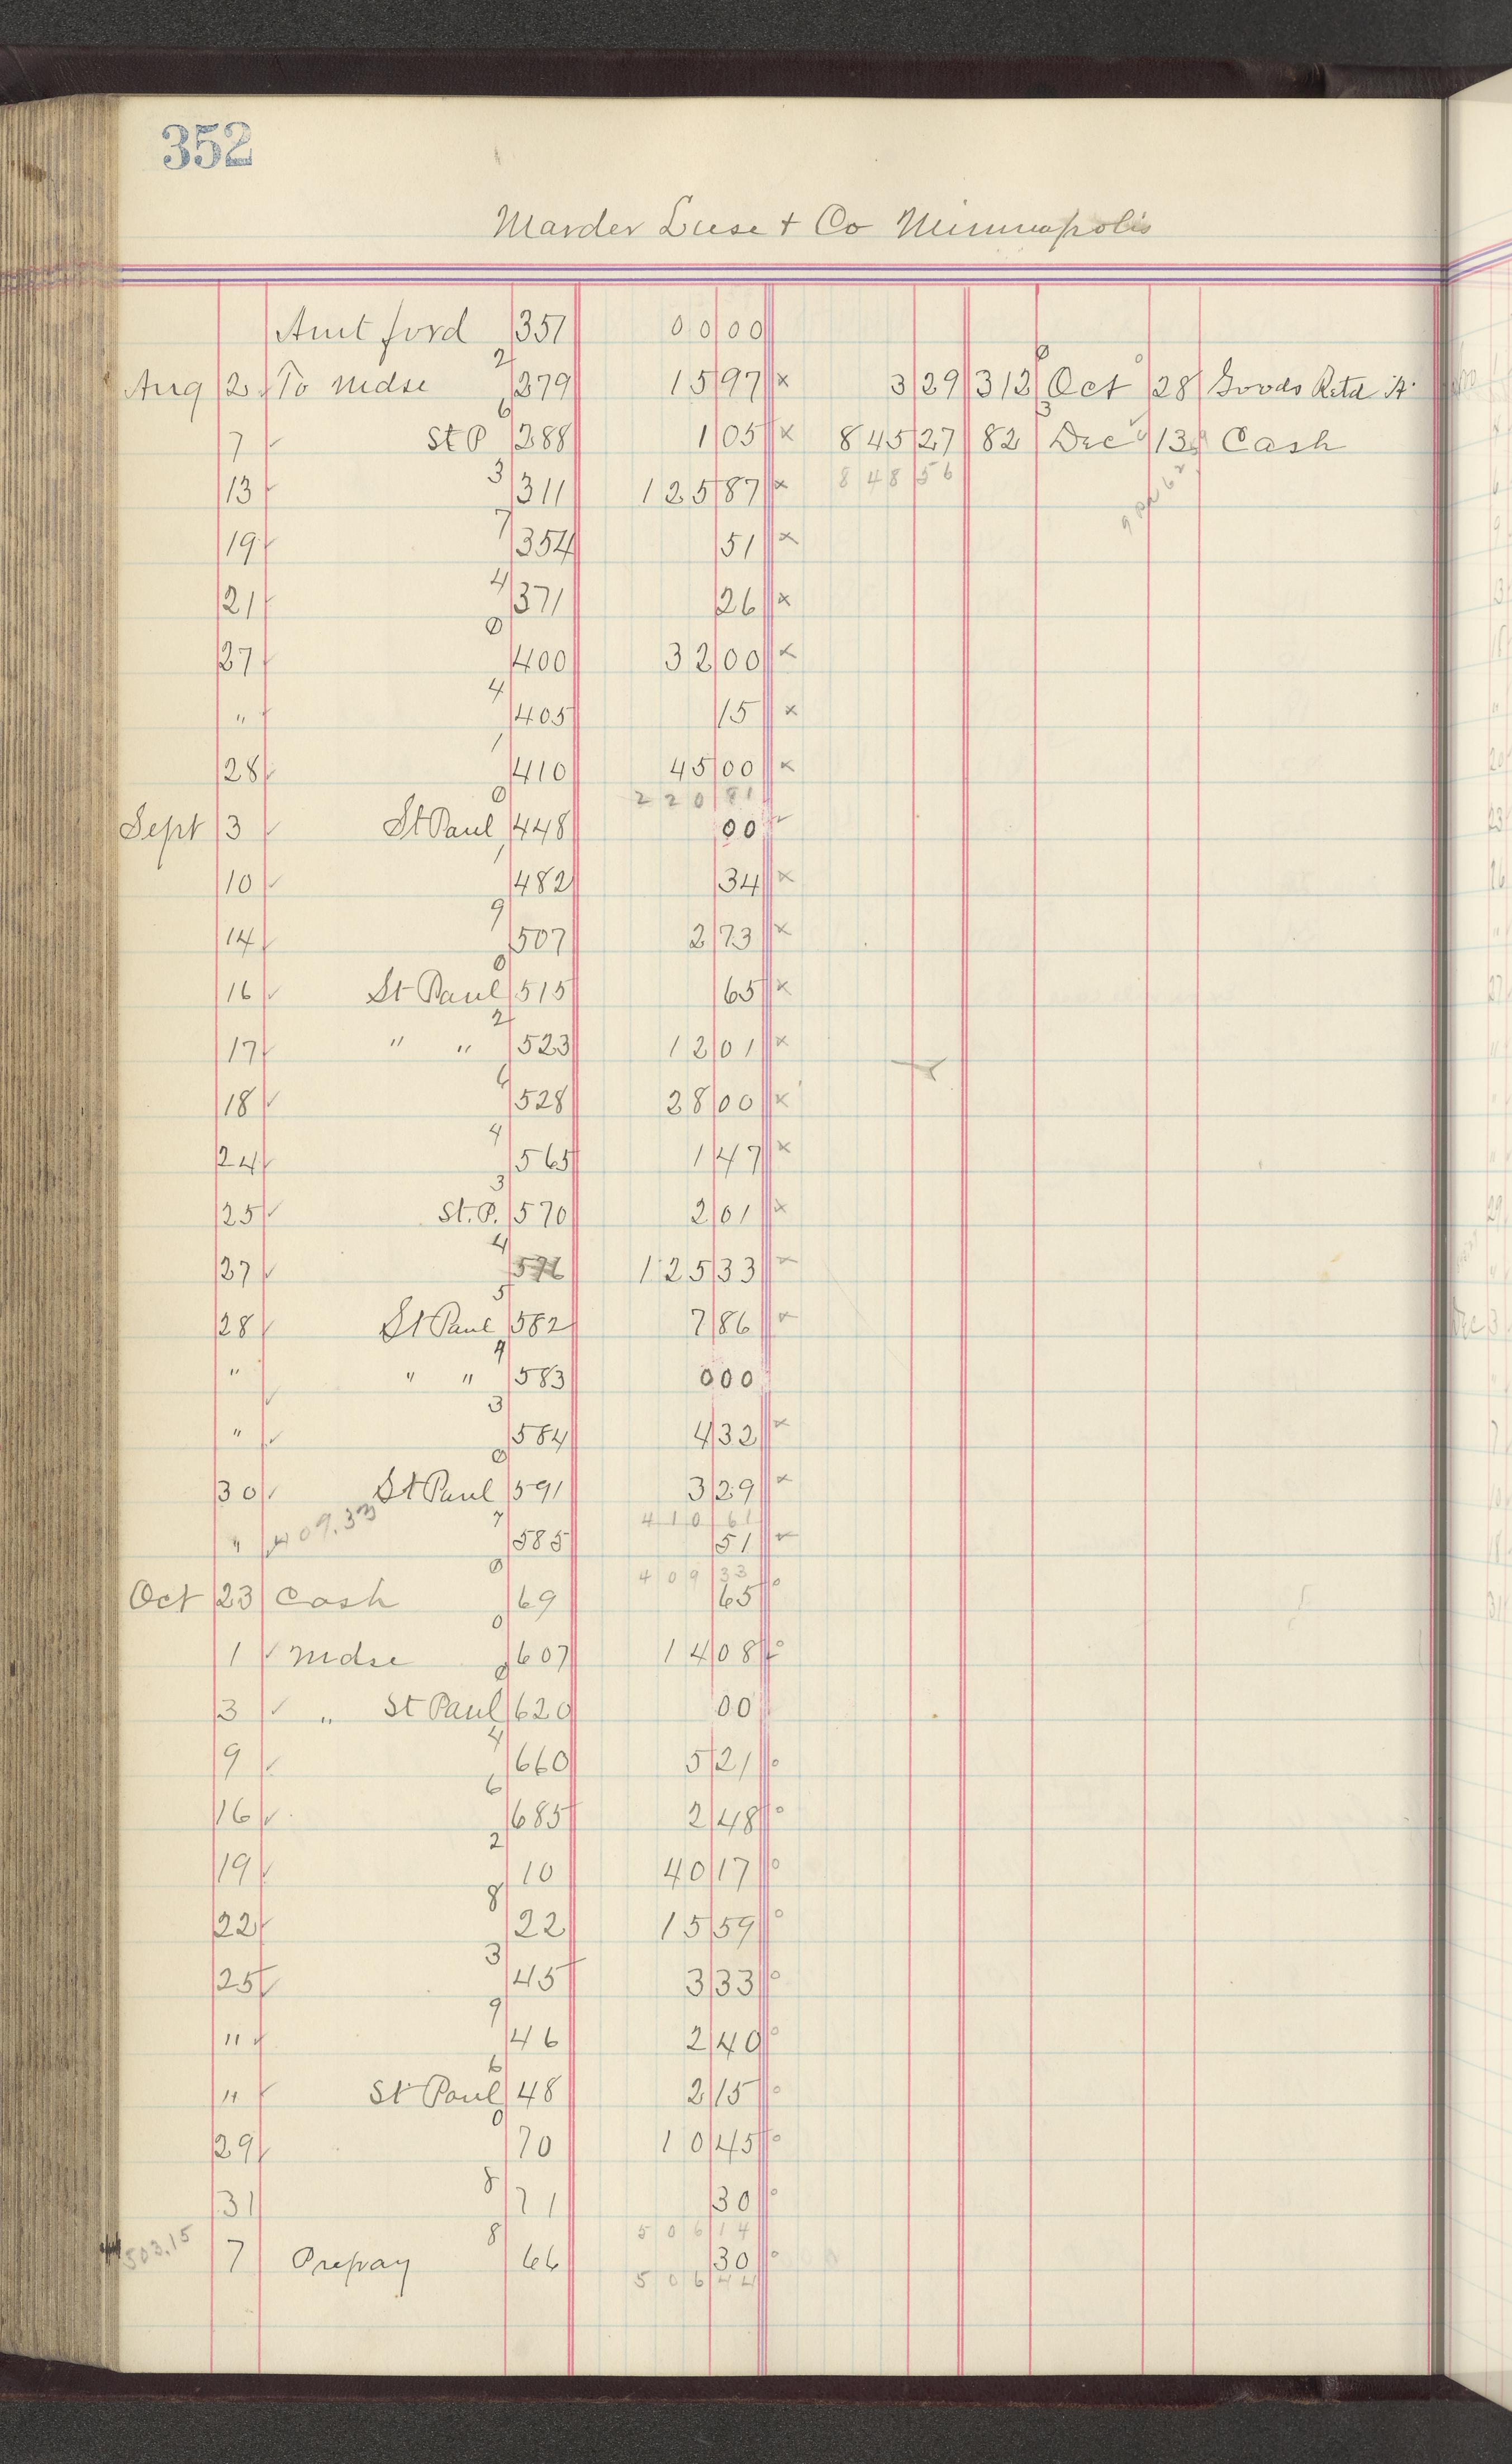 352
Marder Luse + Co Minneapolis
Amt ford 351 00 00
Aug 2 To mdse 2 279 15 97 x 3 29 312 Oct 28 Goods Retd
7 St P 6 288 1 05 x 845 27 82 Dec 13 Cash
13 3 311 125 87 x 848 56
19 7 354 51 x
21 4 371 26 x
27 0 400 32 00 x
" 4 405 15 x
28 1 410 45 00 x
220 81
Sept 3 St Paul 0 448 00
10 1 482 34 x
14 9 507 2 73 x
16 St Paul 0 515 65 x
17 " " 2 523 12 01 x
18 6 528 28 00 x
24 4 565 1 47 x
25 St. P. 3 570 2 01 x
27 4 576 125 33 x
28 St Paul 5 582 7 86 x
" " " 9 583 0 00
" 3 584 4 32 x
30 St Paul 0 591 3 29 x
410 61
" 409.33 7 585 51 x
409 33
Oct 23 Cash 0 69 65
1 mdse 0 607 14 08
3 " St Paul 0 620 00
9 4 660 5 21
16 6 685 2 48
19 2 10 40 17
22 8 22 15 59
25 3 45 3 33
" 9 46 2 40
" St Paul 6 48 2 15
29 0 70 10 45
31 8 71 30
506 14
503.15 7 Prepay 8 66 30
506 44